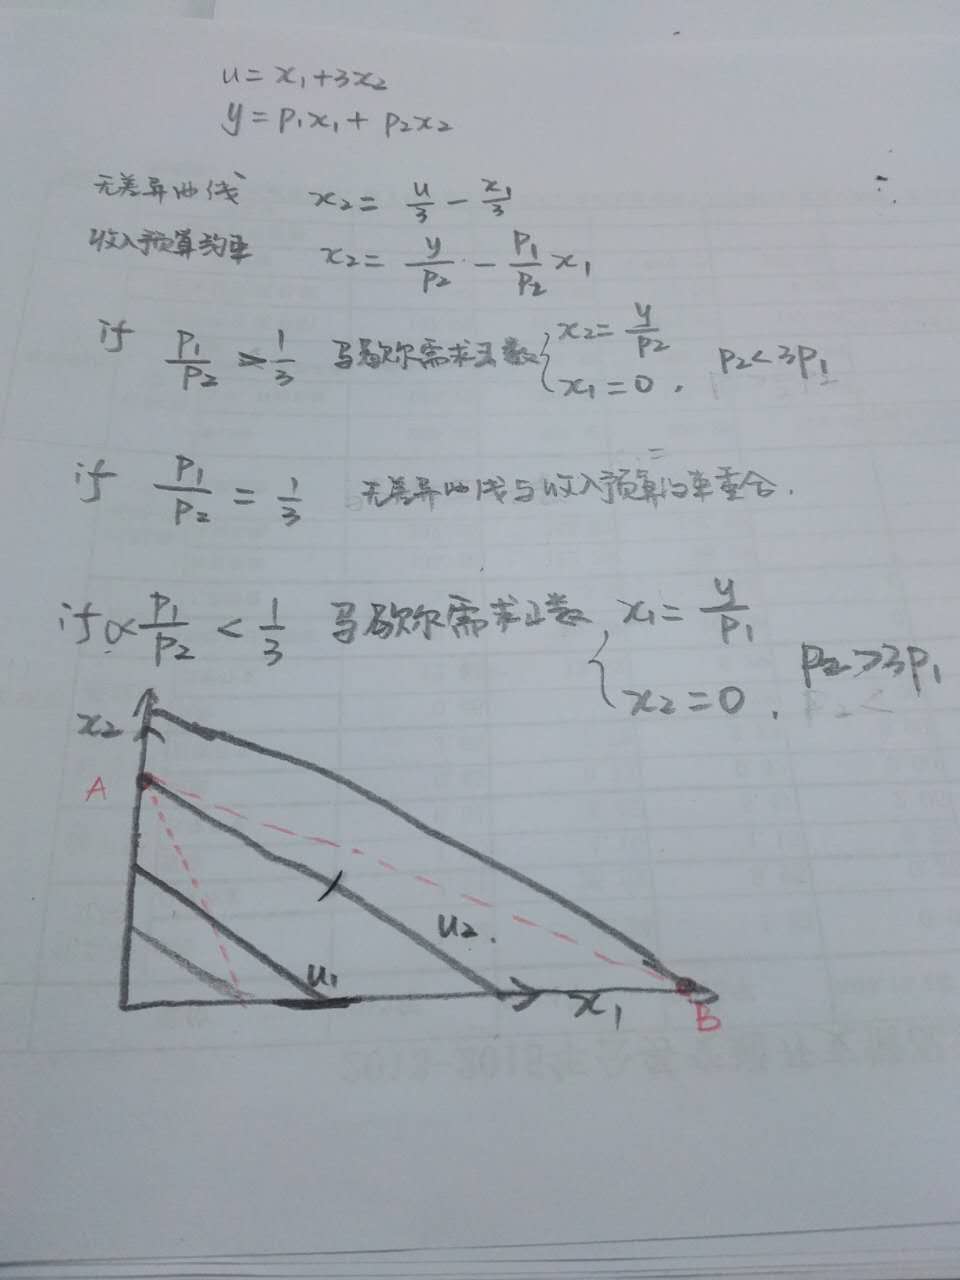 u = x₁ + 3x₂
y = p₁x₁ + p₂x₂
无差异曲线 x₂ = u/3 − x₁/3
收入预算约束 x₂ = y/p₂ − p₁/p₂ x₁
if p₁/p₂ > 1/3 马歇尔需求函数 { x₂ = y/p₂ x₁ = 0 . p₂ < 3p₁
if p₁/p₂ = 1/3 无差异曲线与收入预算约束重合.
if 0< p₁/p₂ < 1/3 马歇尔需求函数 { x₁ = y/p₁ x₂ = 0 . p₂ > 3p₁
x₂
A
u₂.
u₁
x₁
B